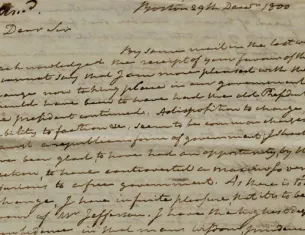 Boston 29th Decr 1800
Dear Sir
By some mail in the last
acknowledged the receipt of your favour of the
cannot say that I am more pleased with the
change now taking place in our
would have been to have had the old President
president continued. A disposition to change
ability to faction are, seem to be common
a republican form of government, I sho
been glad, to have had an opportunity, by the
to have controverted a maxim so
to a free government. As there is to
change, I have infinite pleasure that it is to be
of Mr Jefferson, I have the highest
in that mans wisdom, prudence